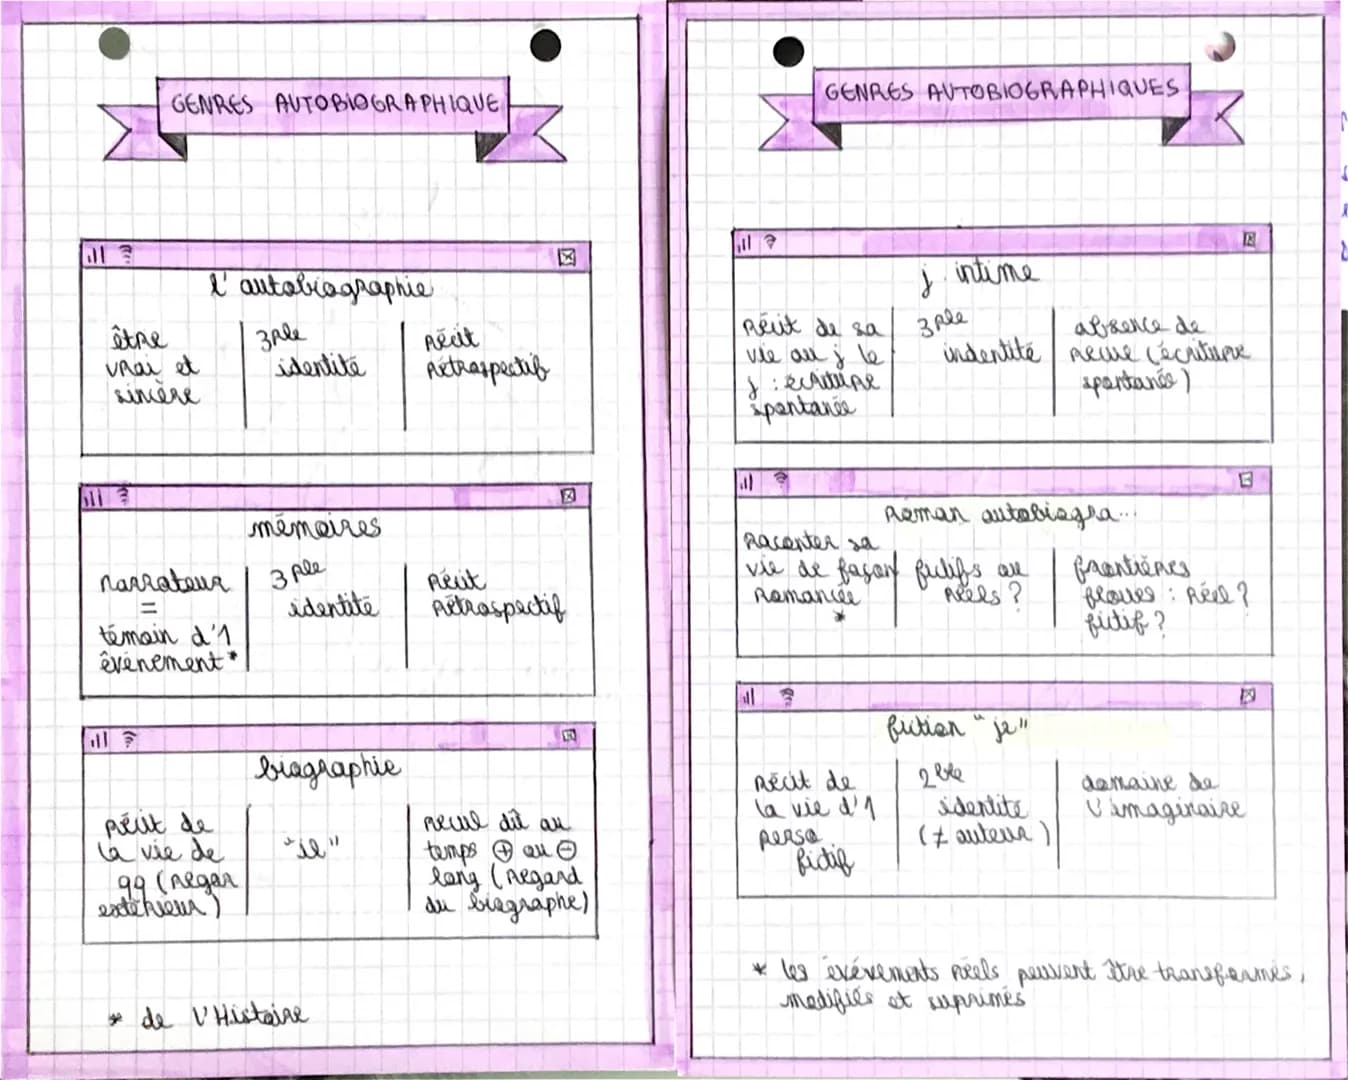 GENRES AUTOBIOGRAPHIQUE
l'autobiographie
être
vrai et
sincère
3ple
identité
récit
rétrospectif
mémoires
narrateur
=
témoin d'1
évènement*
3ple
identité
récit
rétrospectif
biographie
récit de
la vie de
qq (regar
extérieur)
"il"
recul dû au
temps ⊕ ou ⊖
long (regard
du biographe)
* de l'Histoire
GENRES AUTOBIOGRAPHIQUES
j. intime
récit de sa
vie au j le
j : écriture
spontanée
3ple
indentité
absence de
recul (écriture
spontanée)
Roman autobiogra...
Raconter sa
vie de façon
romancée
*
fictifs ou
réels ?
frontières
floues : réel ?
fictif ?
fiction "je"
récit de
la vie d'1
perso
fictif
2ble
identité
(≠ auteur)
domaine de
l'imaginaire
* les évévements réels peuvent être transformés,
modifiés et suprimés